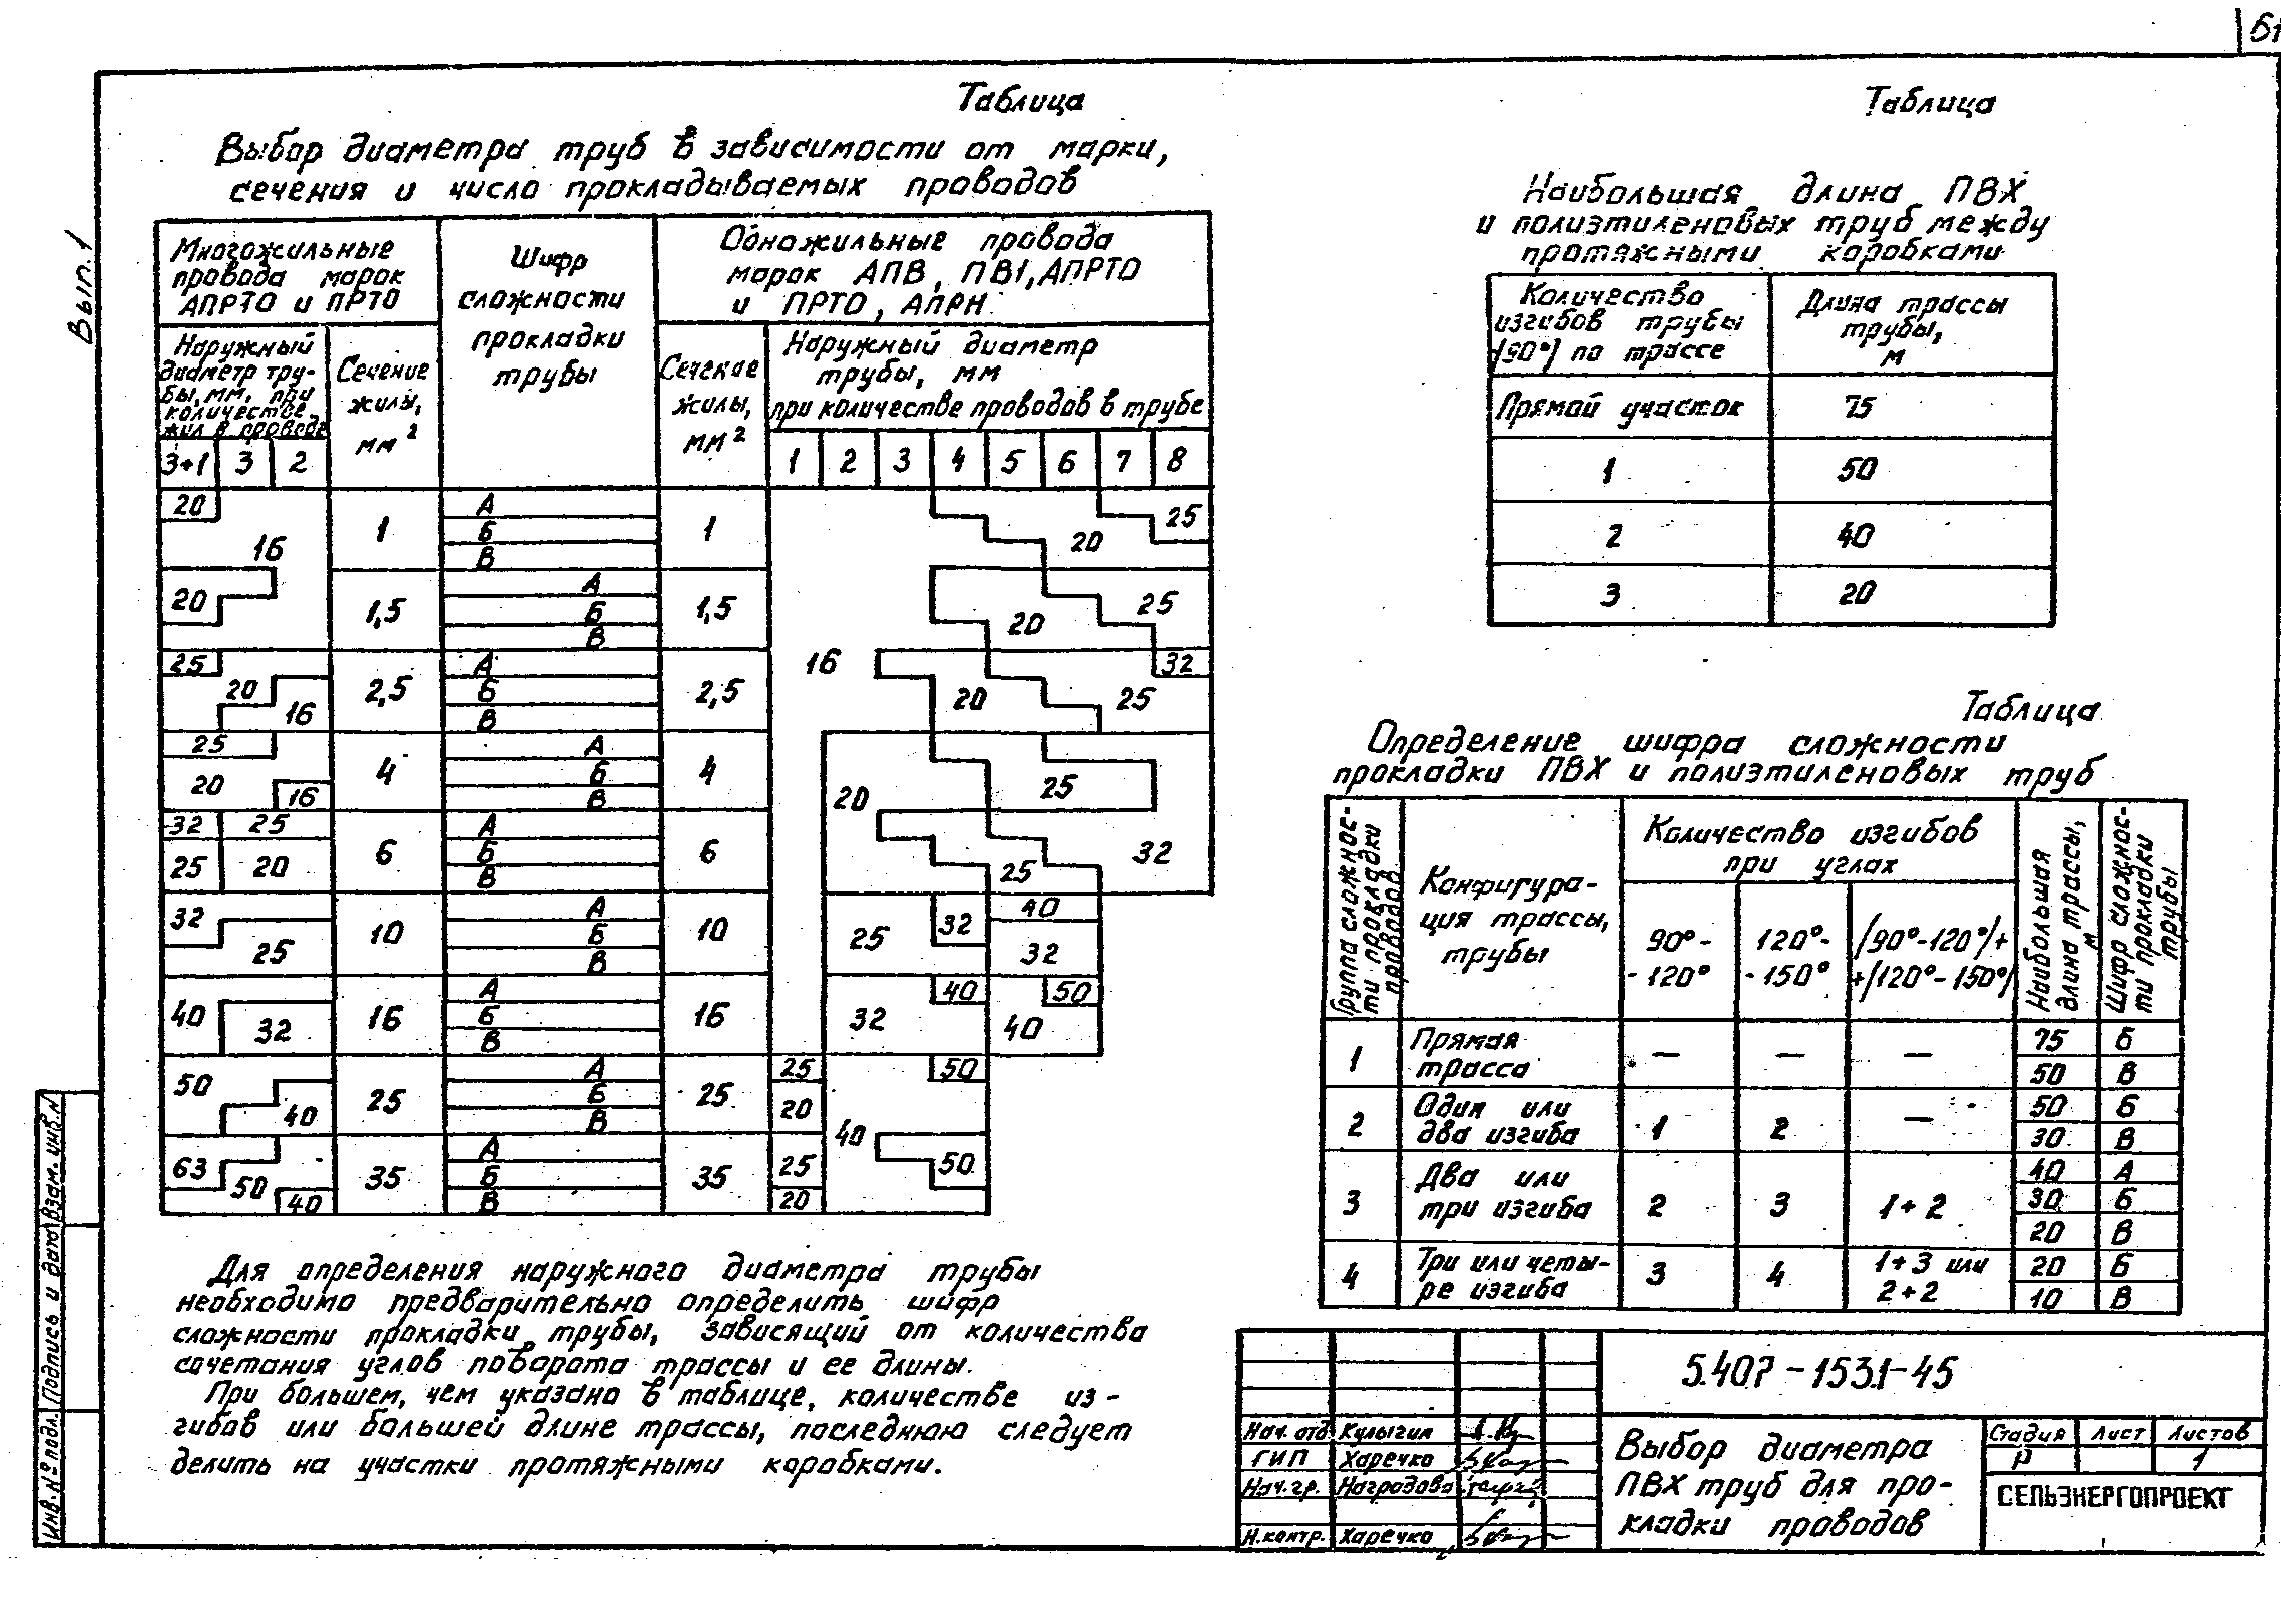 61
Вып. 1
Таблица
Выбор диаметра труб в зависимости от марки,
сечения и число прокладываемых проводов
Многожильные
провода марок
АПРТО и ПРТО
Шифр
сложности
прокладки
трубы
Одножильные провода
марок АПВ, ПВ1, АПРТО
и ПРТО, АПРН
Наружный
диаметр тру-
бы, мм, при
количестве
жил в проводе
Сечение
жилы,
мм²
Сечение
жилы,
мм²
Наружный диаметр
трубы, мм
при количестве проводов в трубе
3+1 3 2
1 2 3 4 5 6 7 8
20 16 1 А Б В 1 20 25
20 1,5 А Б В 1,5 20 25
25 20 16 2,5 А Б В 2,5 16 20 25 32
25 20 16 4 А Б В 4 20 25
32 25 25 20 6 А Б В 6 25 32
32 25 10 А Б В 10 25 32 40 32
40 32 16 А Б В 16 32 40 40 50
50 40 25 А Б В 25 25 20 40 50
63 50 40 35 А Б В 35 25 20 50
Для определения наружного диаметра трубы
необходимо предварительно определить шифр
сложности прокладки трубы, зависящий от количества
сочетания углов поворота трассы и ее длины.
При большем, чем указано в таблице, количестве из-
гибов или большей длине трассы, последнюю следует
делить на участки протяжными коробками.
Таблица
Наибольшая длина ПВХ
и полиэтиленовых труб между
протяжными коробками
Количество
изгибов трубы
(90°) по трассе
Длина трассы
трубы,
м
Прямой участок 75
1 50
2 40
3 20
Таблица
Определение шифра сложности
прокладки ПВХ и полиэтиленовых труб
Группа сложнос-
ти прокладки
проводов
Конфигура-
ция трассы,
трубы
Количество изгибов
при углах
90°-
-120°
120°-
-150°
(90°-120°)+
+(120°-150°)
Наибольшая
длина трассы,
м
Шифр сложнос-
ти прокладки
трубы
1 Прямая
трасса
— — —
75 Б
50 В
2 Один или
два изгиба
1 2 —
50 Б
30 В
3 Два или
три изгиба
2 3 1+2
40 А
30 Б
20 В
4 Три или четы-
ре изгиба
3 4 1+3 или
2+2
20 Б
10 В
5.407-153.1-45
Нач. отд. Кулыгин
ГИП Харечко
Нач. гр. Наградова
Н. контр. Харечко
Выбор диаметра
ПВХ труб для про-
кладки проводов
Стадия Лист Листов
Р 1
СЕЛЬЭНЕРГОПРОЕКТ
Инв. № подл. Подпись и дата Взам. инв. №